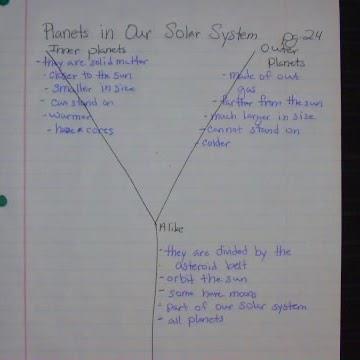 Planets in Our Solar System
pg. 24
Inner planets
- they are solid matter
- closer to the sun
- smaller in size
- can stand on
- warmer
- have cores
Outer
Planets
- made of out
gas
- farther from the sun
- much larger in size
- cannot stand on
- colder
Alike
- they are divided by the
asteroid belt
- orbit the sun
- some have moons
- part of our solar system
- all planets